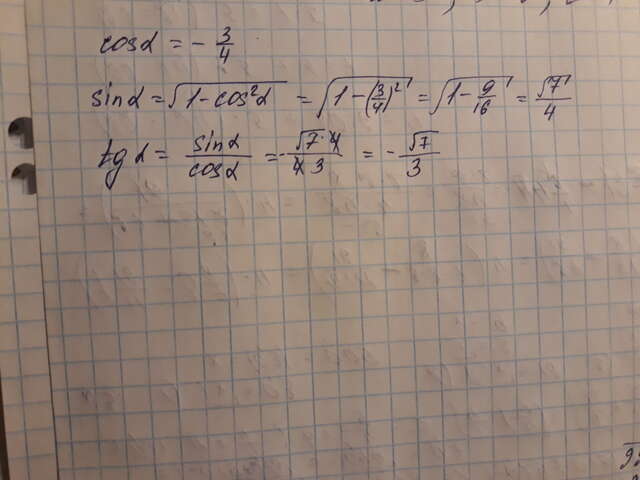 cosα = - 3/4
sinα = √(1-cos²α) = √(1-(3/4)²) = √(1-9/16) = √7/4
tg α = sinα/cosα = - √7·4/4 3 = - √7/3